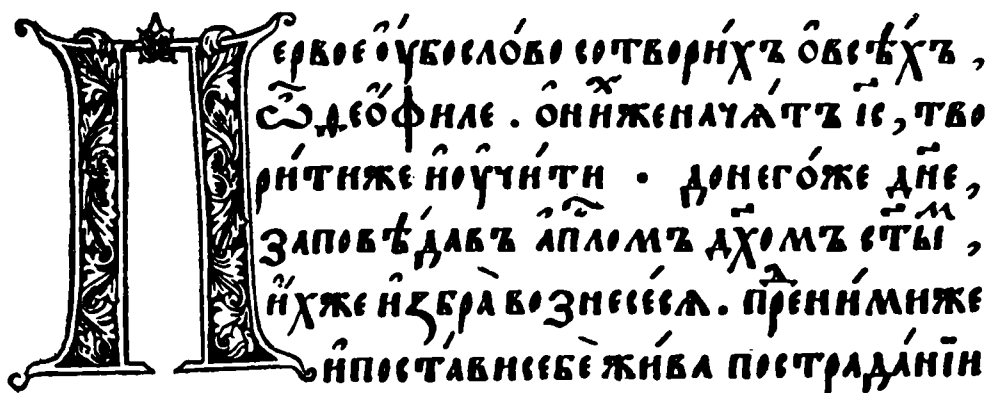 Первое ᲂу҆бо сло́во сотвори́хъ ѻ҆ всѣ́хъ,
ѽ деѻ҆филе. ѻ҆ ни́хже нача́тъ і҃с, тво
ри́ти же и҆ ᲂу҆чи́ти · до него́же дн҃е,
заповѣ́давъ а҆пⷭ҇ломъ дх҃омъ ст҃ыⷨ,
и҆́хже и҆збра̀ вознесесѧ. преⷣ ни́миже
и҆ поста́ви себѐ жи́ва по страда́нїи